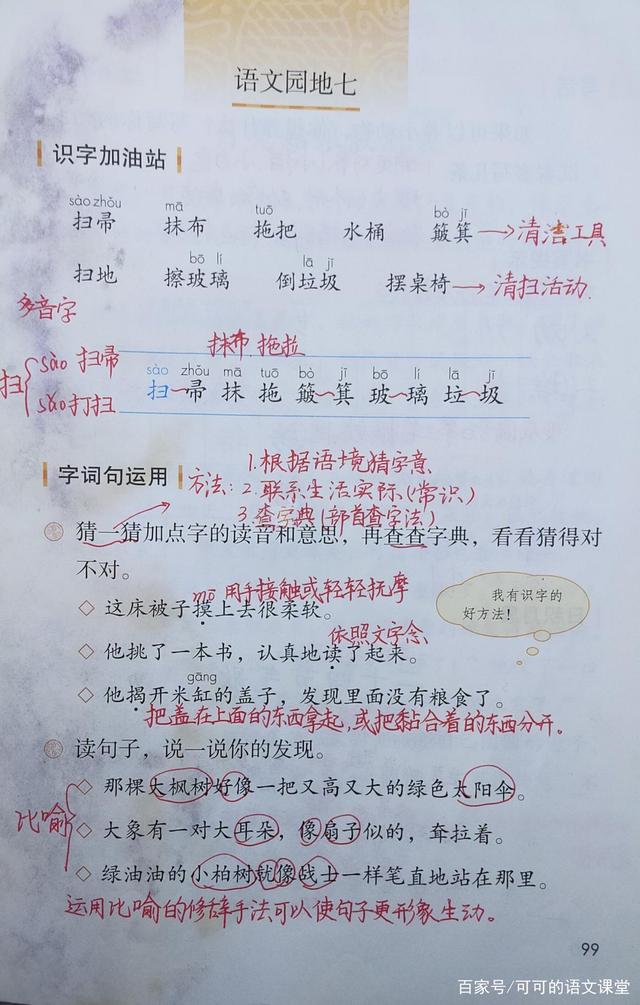 语文园地七
识字加油站
sào zhǒu mā tuō bò jī
扫帚 抹布 拖把 水桶 簸箕 清洁工具
bō lí lā jī
扫地 擦玻璃 倒垃圾 摆桌椅 清扫活动.
多音字
抹布 拖拉
扫 sào 扫帚
sǎo 打扫
sào zhǒu mā tuō bò jī bō lí lā jī
扫 帚 抹 拖 簸 箕 玻 璃 垃 圾
字词句运用
方法: 1.根据语境猜字意
2.联系生活实际(常识)
3.查字典(部首查字法)
猜一猜加点字的读音和意思，再查查字典，看看猜得对
不对。
mō 用手接触或轻轻抚摩
我有识字的
好方法！
◇ 这床被子摸上去很柔软。
依照文字念
◇ 他挑了一本书，认真地读了起来。
gāng
◇ 他揭开米缸的盖子，发现里面没有粮食了。
把盖在上面的东西拿起,或把黏合着的东西分开。
读句子，说一说你的发现。
◇ 那棵大枫树好像一把又高又大的绿色太阳伞。
比喻
◇ 大象有一对大耳朵，像扇子似的，耷拉着。
◇ 绿油油的小柏树就像战士一样笔直地站在那里。
运用比喻的修辞手法可以使句子更形象生动。
99
百家号/可可的语文课堂